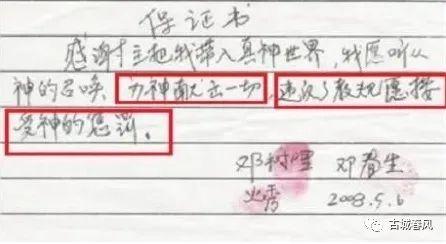 保证书
感谢主把我带入真神世界,我愿听从
神的召唤,为神献出一切,违次了教规愿接
受神的惩罚。
邓树 邓春生
火秀 2008.5.6
古城春风